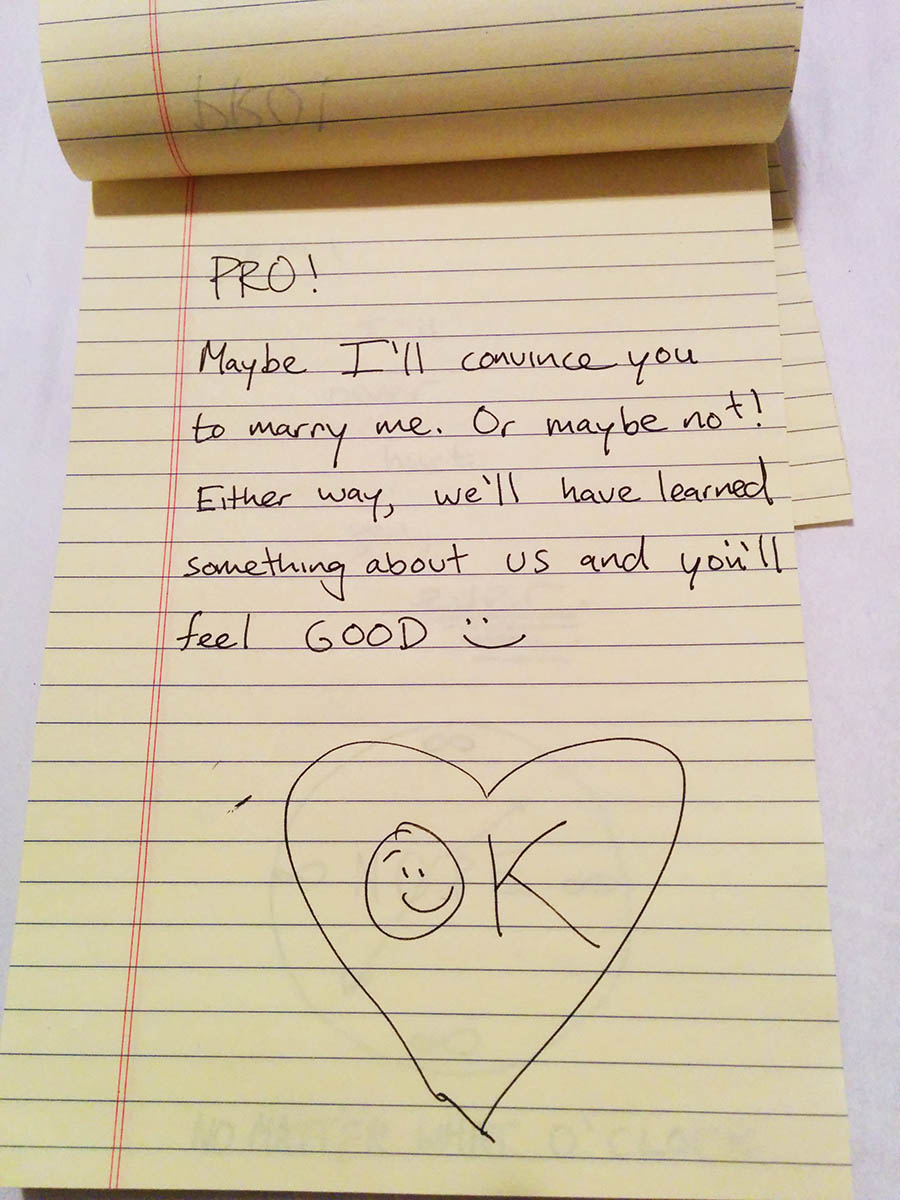 PRO!
PRO!
Maybe I'll convince you
to marry me. Or maybe not!
Either way, we'll have learned
something about us and you'll
feel GOOD
OK
NO MATTER WHAT O'CLOCK